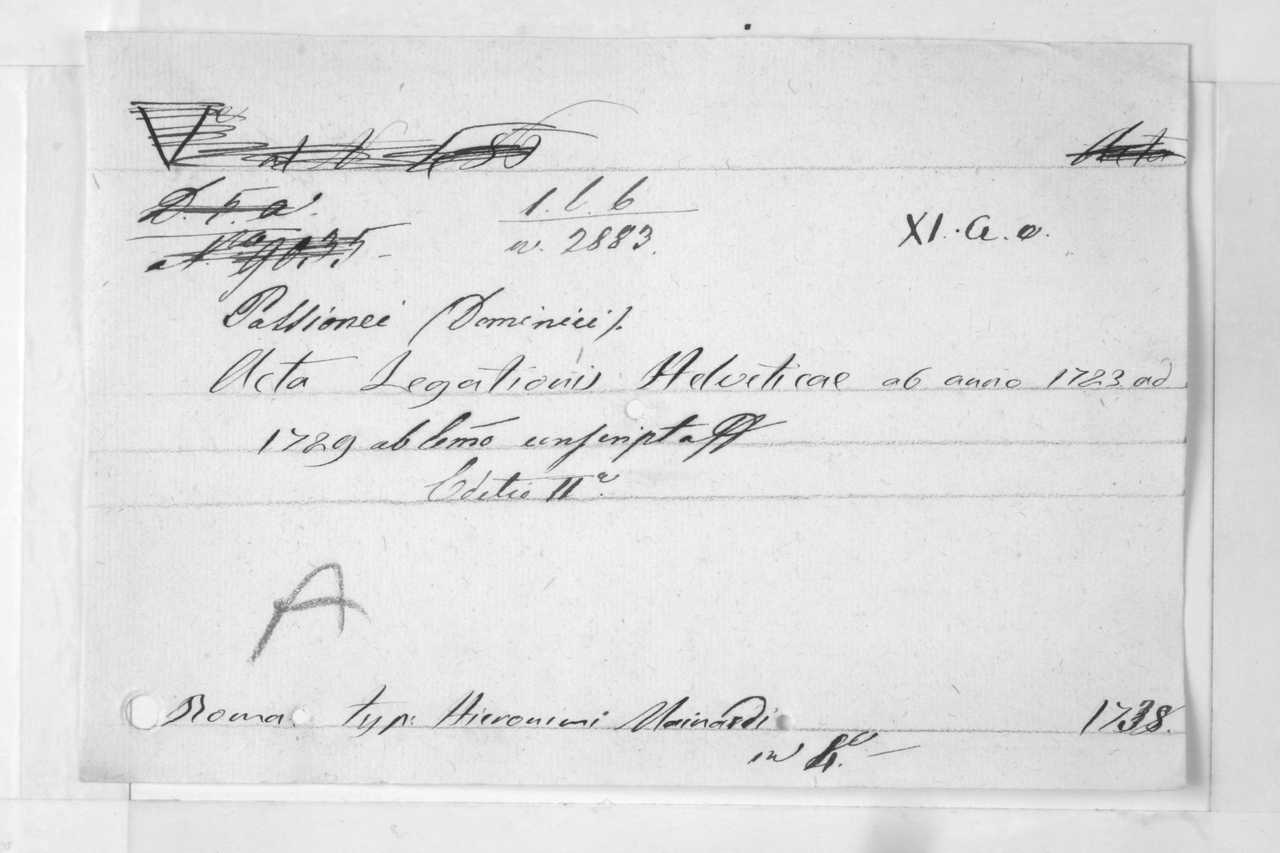 Acta
D. F. a.
1. l. b
n. 2883.
XI. a. a.
Passionei (Dominici).
Acta Legationis Helveticae ab anno 1723 ad
1729 ab Emō conscripta
Editio IIa.
A
Roma typ. Hieronimi Mainardi 1738.
in 4o. —